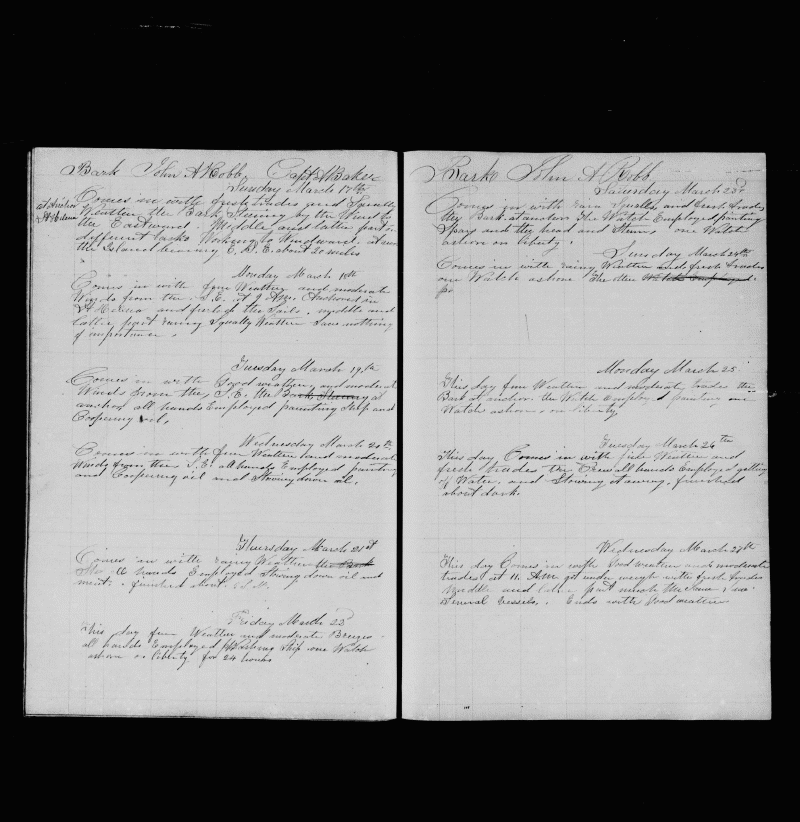 Bark John A Robb, Capt Baker
Sunday March 17th
at Anchor
St Helena
Comes in with fresh trades and Squally
Weather the Bark Steering by the Wind to
the Eastward. Middle and latter part on
different tacks Working to Windward at
the Island bearing E. about 20 miles
Monday March 18th
Comes in with fine Weather and moderate
Winds from the S.E. at 9 Am. Anchored in
St Helena and furled the Sails. middle and
latter part rainy Squally Weather Saw nothing
of importance.
Tuesday March 19th
Comes in with Good weather, and moderate
Winds from the S.E. the Bark Steering at
anchor all hands Employed painting Ship and
Coopering oil.
Wednesday March 20th
Comes in with fine Weather and moderate
Winds from the S.E. all hands Employed painting
and Coopering oil and Stowing down oil.
Thursday March 21st
Comes in with rainy Weather the Bark
hands Employed Stowing down oil and
finished about
Friday March 22d
This day fine Weather and moderate Breezes
all hands Employed Ship one Watch
ashore on liberty for 24 hours
Bark John A Robb
Saturday March 23d
Comes in with rain Squalls, and fresh trades
the Bark at anchor The Watch Employed painting
Spars and the head and Stern, one Watch
ashore on liberty.
Sunday March 24th
Comes in with rainy Weather and fresh trades
one Watch ashore The other Watch Employed
Monday March 25
This day fine Weather and moderate trades the
Bark at anchor the Watch Employed painting one
Watch ashore on liberty
Tuesday March 26th
This day Comes in with fine Weather and
fresh trades the Crew all hands Employed getting
of Water, and Stowing finished
about dark.
Wednesday March 27th
This day Comes in with Good weather and moderate
trades at 11. AM got under weigh with fresh trades
Middle and latter part much the Same, saw
Several Vessels. Ends with Good weather